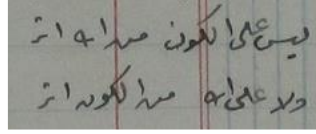 ليس على الكون من الله اثر
ولا على الله من الكون اثر